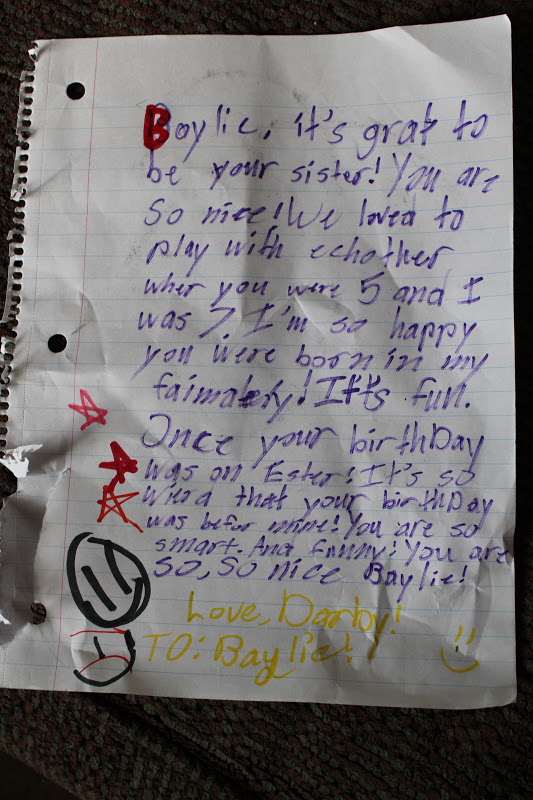 Baylie, it's grat to
be your sister! You are
so nice! We loved to
play with echother
when you were 5 and I
was 7. I'm so happy
you were born in my
faimatery! It's fun.
Once your birthDay
was on Ester! It's so
wierd that your birthDay
was befor mine! You are so
smart. And funny! You are
so, so nice Baylie!
Love, Darby!
TO: Baylie!